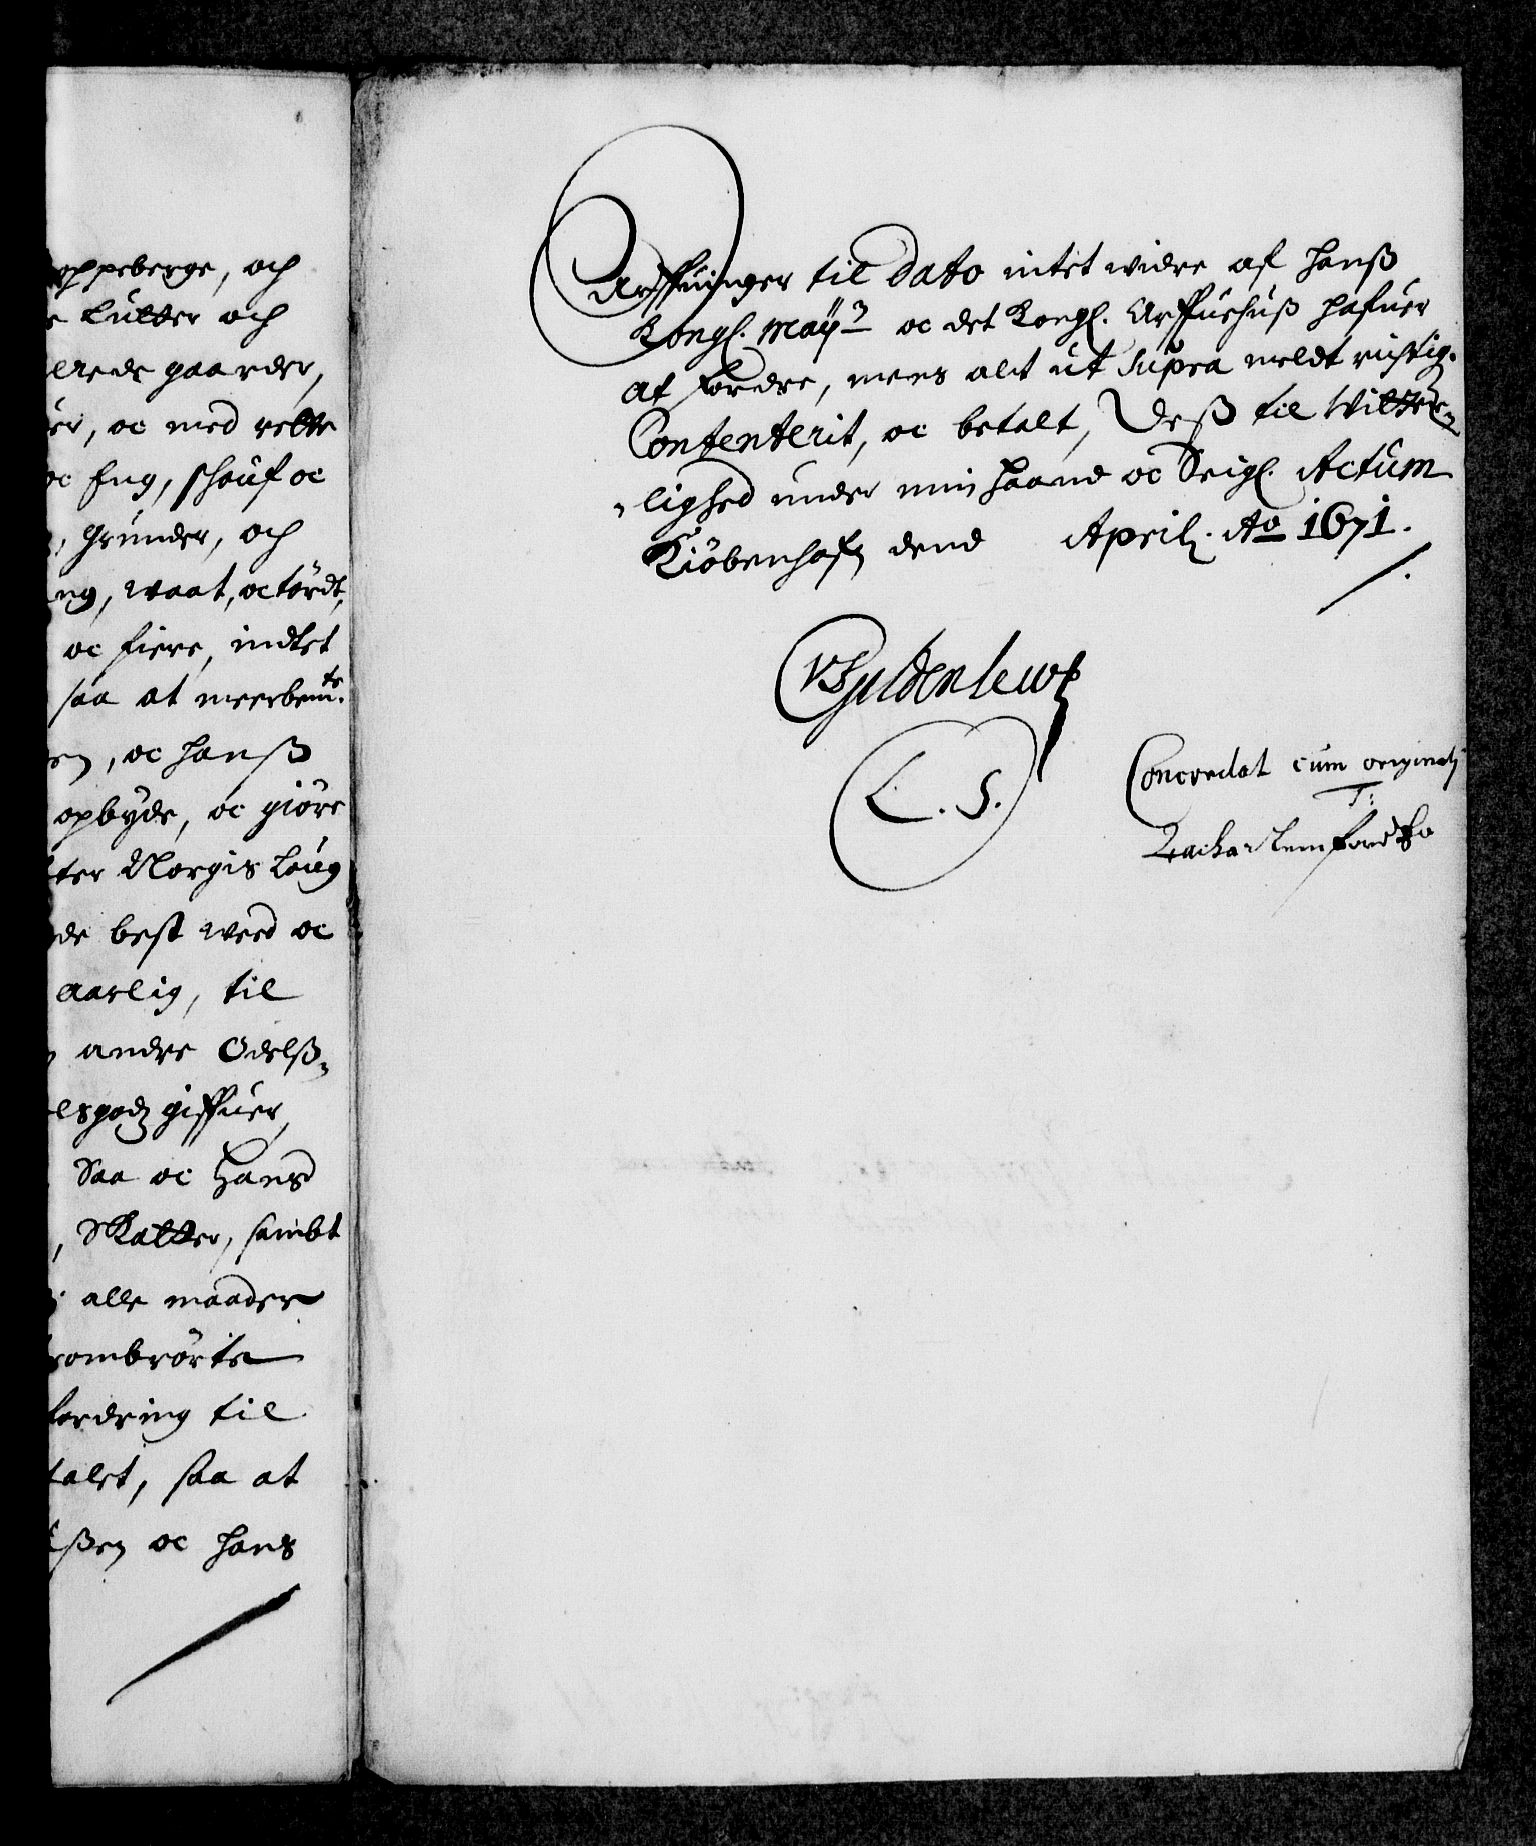 oppeberge, och
Lutter och
lede gaarder,
er, oc med rette
oc Eng, schouf oc
grunder, och
ng, waat, oc tördt,
oc fiere, indtet
saa at meerbemte.
en, oc hanß
opbyde, oc giöre
ter Norgis Loug
de best weed oc
aarlig, til
andre Odelß-
elsgodz giffuer,
Saa oc Hans
, Skatter, sambt
alle maader
ombrörte
fordring til
talet, saa at
ßen oc hans
Arffuinger til Dato intet widre af Hanß
Kongl. Mayt oc det Kongl. Arffuehuß hafuer
at fordre, mens alt ut Supra meldt rigtig.
Contenterit, oc betalt, Deß til Witter-
lighed under min Haand oc Seigl. Actum
Kiöbenhafn dend Aprilj. Ao 1671.
VGuldenlew
L. S.
Concordat cum originalj
T: